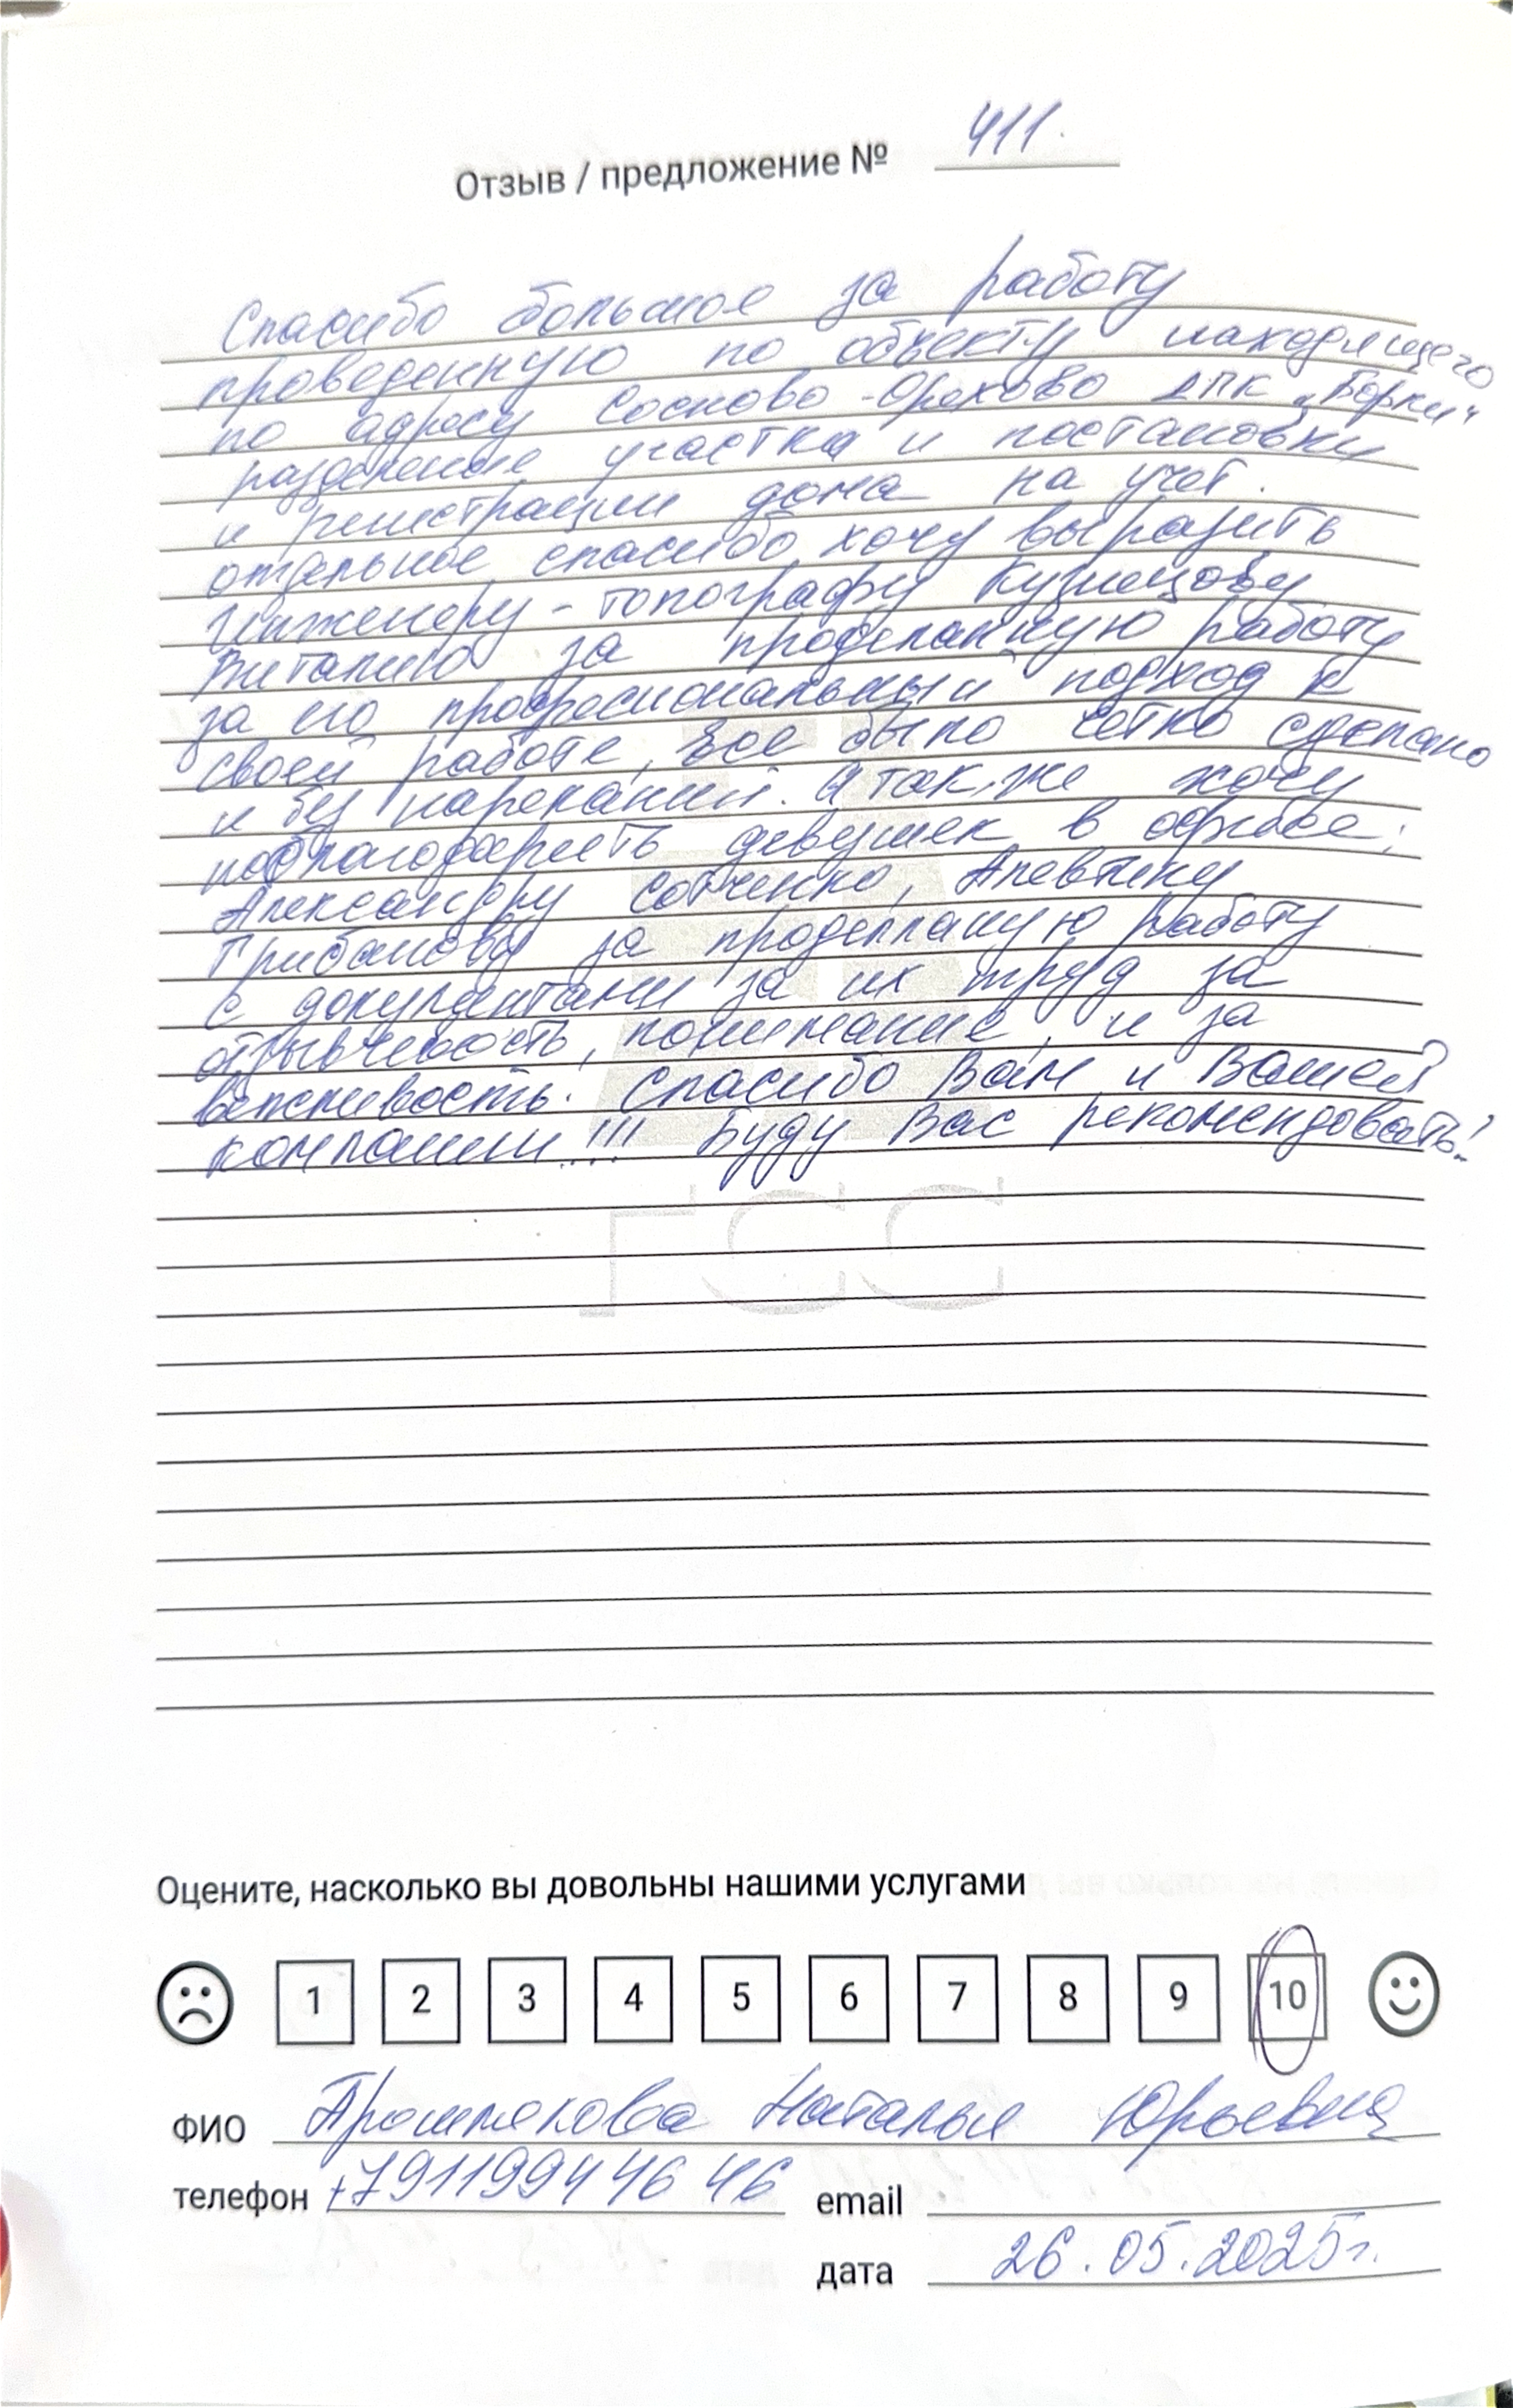 Отзыв / предложение № 411.
Спасибо большое за работу
проведенную по объекту находящего
по адресу Сосново-Орехово ДПК „Борки"
разделение участка и постановки
и регистрации дома на учет.
отдельное спасибо хочу выразить
Инженеру-топографу Кузнецову
Виталию за проделанную работу
за его професиональный подход к
своей работе, все было четко сделано
и без нареканий. А так же хочу
поблагодарить девушек в офисе:
Александру Сотченко, Алевтину
Грибанову за проделланую работу
с документами за их труд за
отзывчивость, понимание, и за
вежливость. Спасибо Вам и Вашей
компании!!! Буду Вас рекомендовать!
ГСС
Оцените, насколько вы довольны нашими услугами
1 2 3 4 5 6 7 8 9 10
ФИО Наталья Юрьевна
телефон +7911994 46 46 email
дата 26.05.2025г.